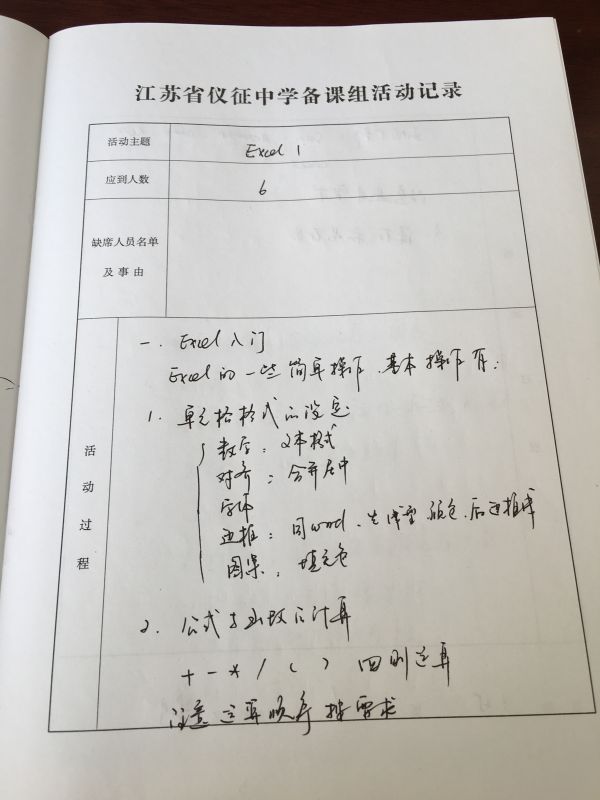 江苏省仪征中学备课组活动记录
活动主题 Excel 1
应到人数 6
缺席人员名单
及事由
活动过程
一. Excel入门
Excel的一些简单操作.基本操作有:
1. 单元格格式的设定
数字: 文本格式
对齐: 合并居中
字体
边框: 同word. 先线型 颜色.后边框
图案. 填充色
2. 公式与函数的计算
+ - * / ( ) 四则运算
注意运算顺序 按需求